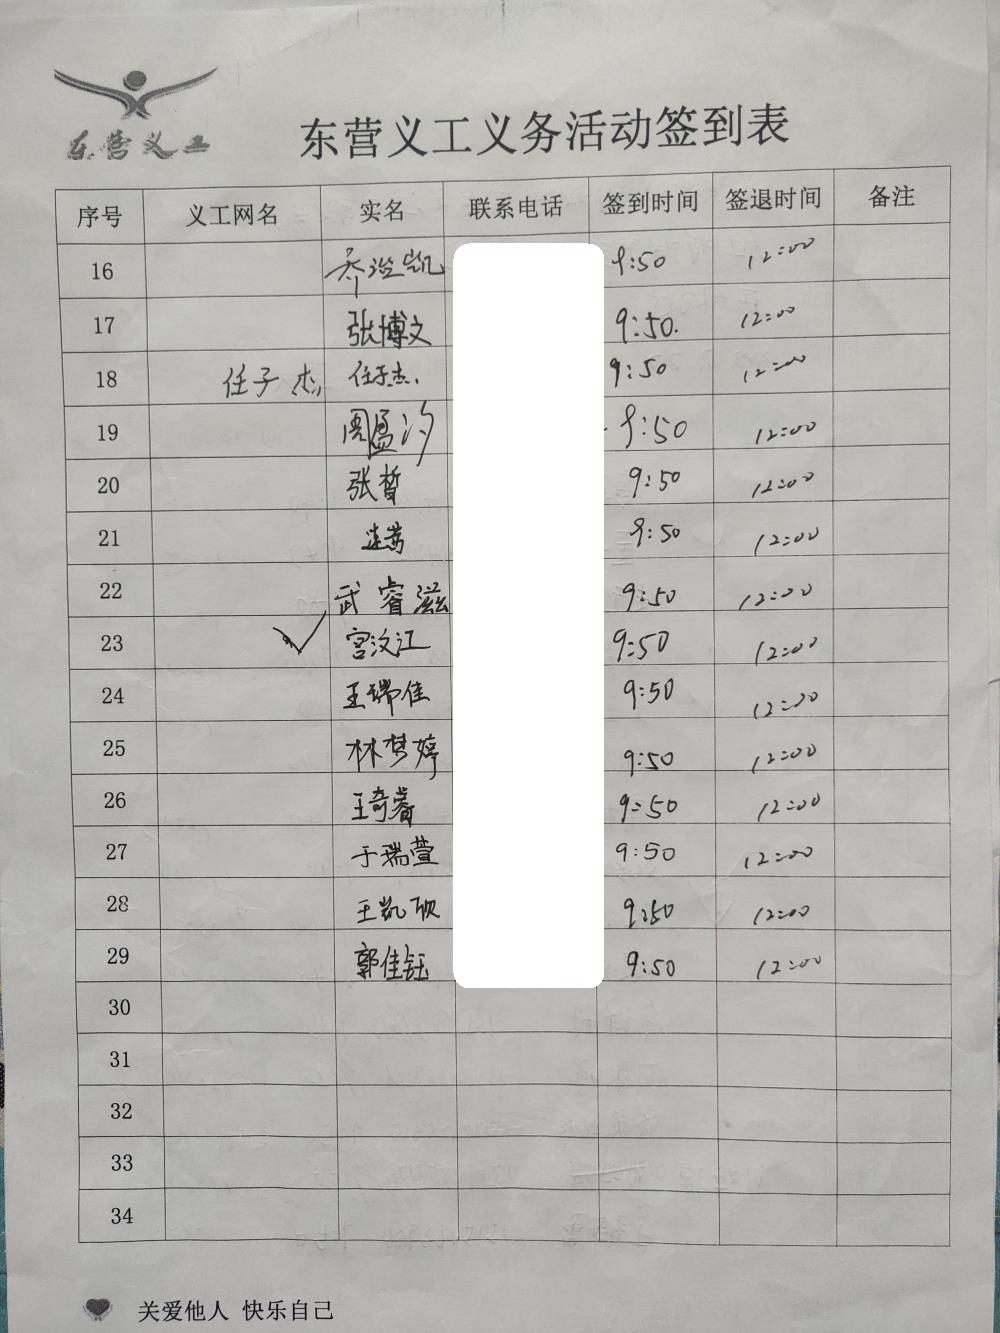 东营义工
东营义工义务活动签到表
序号 义工网名 实名 联系电话 签到时间 签退时间 备注
16 乔滋凯 9:50 12:00
17 张博文 9:50. 12:00
18 任子杰 任子杰. 9:50 12:00
19 周盈汐 9:50 12:00
20 张哲 9:50 12:00
21 9:50 12:00
22 武睿滋 9:50 12:00
23 ✓ 宫汶江 9:50 12:00
24 王瑞佳 9:50 12:00
25 林梦婷 9:50 12:00
26 王奇睿 9:50 12:00
27 于瑞萱 9:50 12:00
28 王凯 9:50 12:00
29 郭佳钰 9:50 12:00
30
31
32
33
34
关爱他人 快乐自己